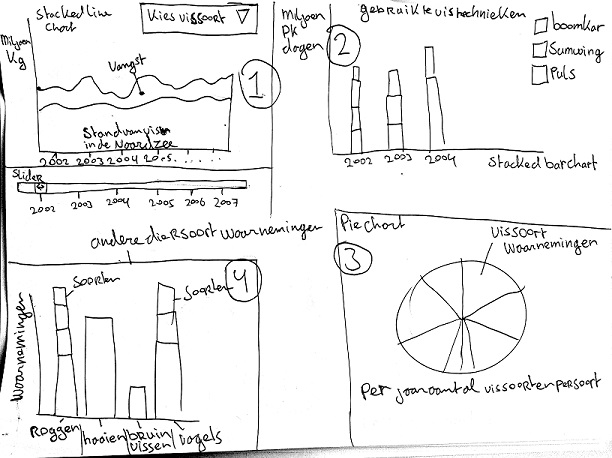 Stacked Line
Chart
Kies vissoort
Miljoen
Kg
Vangst
1
Stand van vis
in de Noordzee
2002 2003 2004 2005......
Slider
2002 2003 2004 2005 2006 2007
Miljoen
PK
dagen
gebruikte vistechnieken
2
boomkor
Sumwing
Puls
2002 2003 2004
Stacked bar chart
andere diersoort waarnemingen
4
Soorten
Soorten
Waarnemingen
Roggen
haaien
bruin
vissen
vogels
Pie Chart
3
vissoort
waarnemingen
Per jaar aantal vissoorten per soort